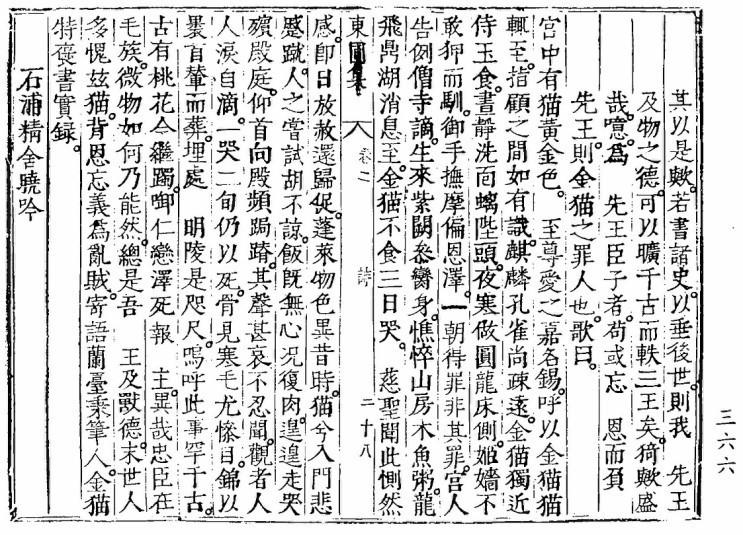 其以是歟。若書諸史。以垂後世。則我 先王
及物之德。可以曠千古而軼三王矣。猗歟盛
哉。噫。爲 先王臣子者。苟或忘 恩而負
先王。則金猫之罪人也。歌曰。
宮中有猫黃金色。 至尊愛之嘉名錫。呼以金猫猫
輒至。指顧之間如有識。麒麟孔雀尙疎遠。金猫獨近
侍玉食。晝靜洗面螭陛頭。夜寒做圓龍床側。姬嬙不
敢狎而馴。御手撫摩偏恩澤。一朝得罪非其罪。宮人
告例僧寺謫。生來紫闥豢臠身。憔悴山房木魚粥。龍
飛鼎湖消息至。金猫不食三日哭。 慈聖聞此惻然
東圃集 卷之 詩 二十八
感。卽日放赦還歸促。蓬萊物色異昔時。猫兮入門悲
蹙蹴。人之嘗試胡不諒。飯旣無心況復肉。遑遑走哭
殯殿庭。仰首向殿頻跼蹐。其聲甚哀不忍聞。觀者人
人淚自滴。一哭二旬仍以死。骨見寒毛尤慘目。錦以
褁首輦而葬。埋處 明陵是咫尺。嗚呼此事罕于古。
古有桃花今繼躅。啣仁戀澤死報 主。異哉忠臣在
毛族。微物如何乃能然。總是吾 王及獸德。末世人
多愧玆猫。背恩忘義爲亂賊。寄語蘭臺秉筆人。金猫
特褒書實錄。
石浦精舍曉吟
三六六